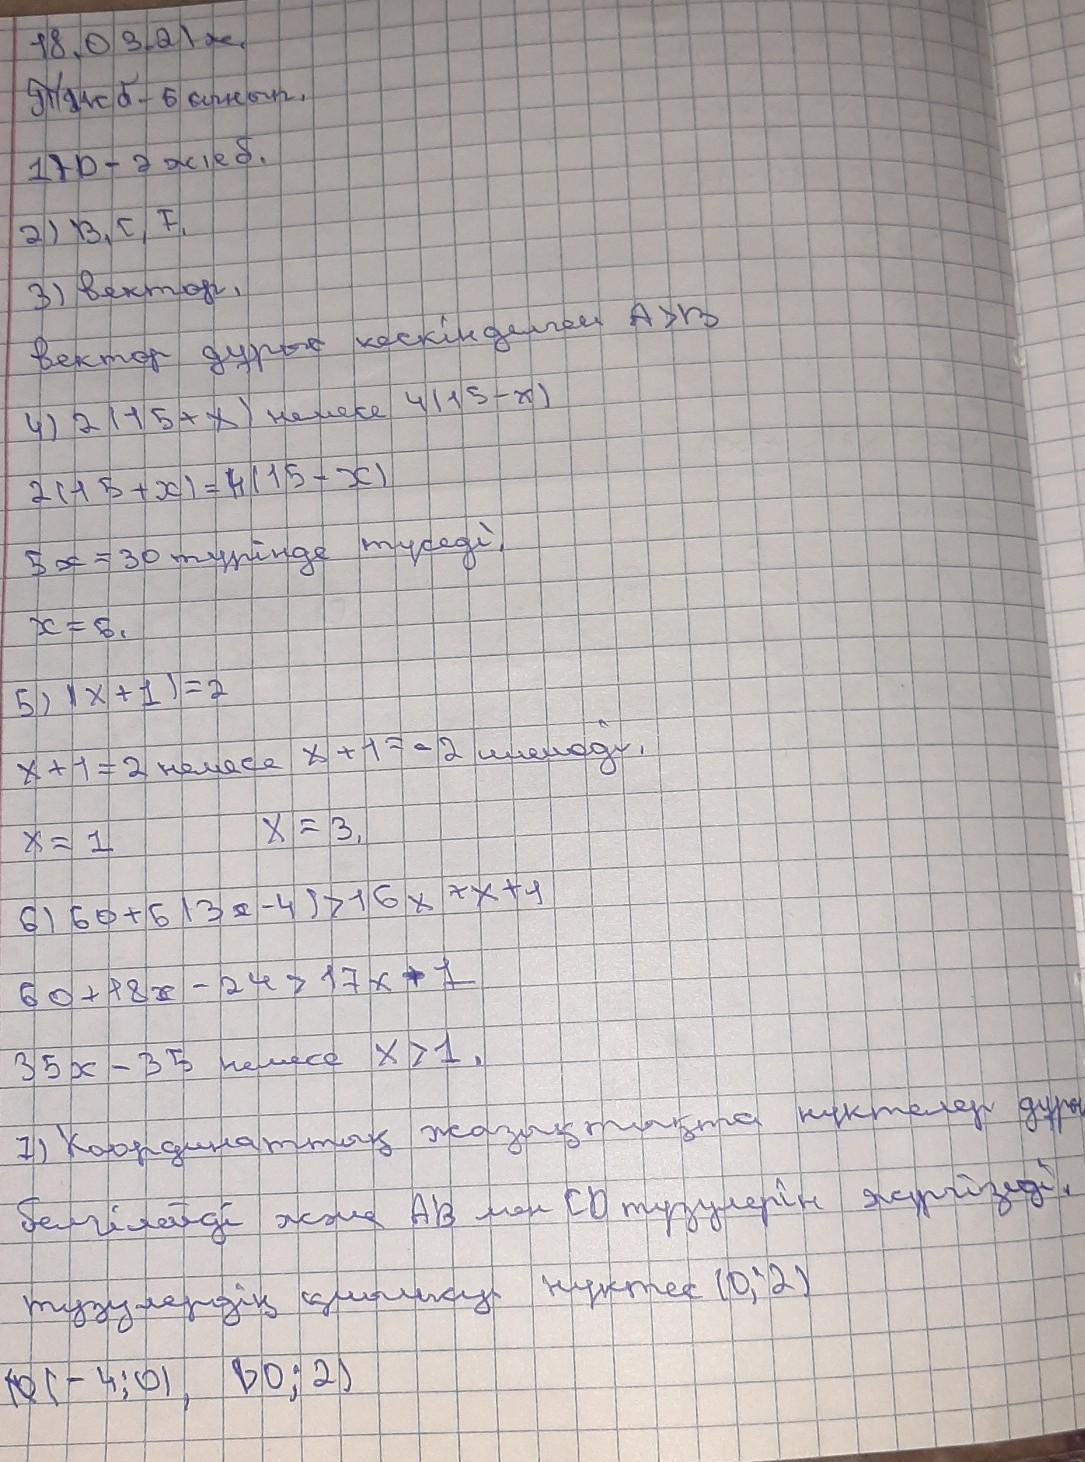 18.03.21ж.
Тжб - 6 сынып.
1) D - 2 жкб.
2) B, C, F.
3) Вектор.
Вектор дұрыс кескінделген A > B
4) 2(15+x) немесе 4(15-x)
2(15+x)=4(15-x)
5x=30 түрінде түседі,
x=5.
5) |x+1|=2
x+1=2 немесе x+1=-2 шешеді.
x=1 x=3.
6) 60+6(3x-4)>16x+x+1
60+18x-24>17x+1
35x-35 немесе x>1.
7) Координаттық жазықтықта нүктелер дұры
белгілейді және AB мен CD түзулерін жүргізеді.
түзулердің қиылысу нүктес (0;2)
(-4;0), (0;2)